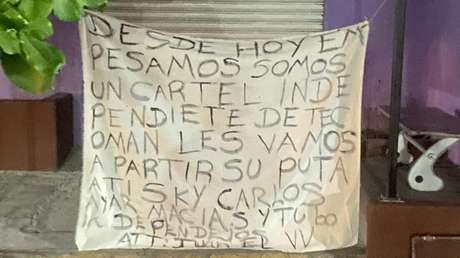 DESDE HOY EM
PESAMOS SOMOS
UN CARTEL INDE
PENDIETE DE TEC
OMAN LES VAMOS
A PARTIR SU PUTA
A TI SKY CARLOS
MACIAS Y TU
DE PENDEJOS